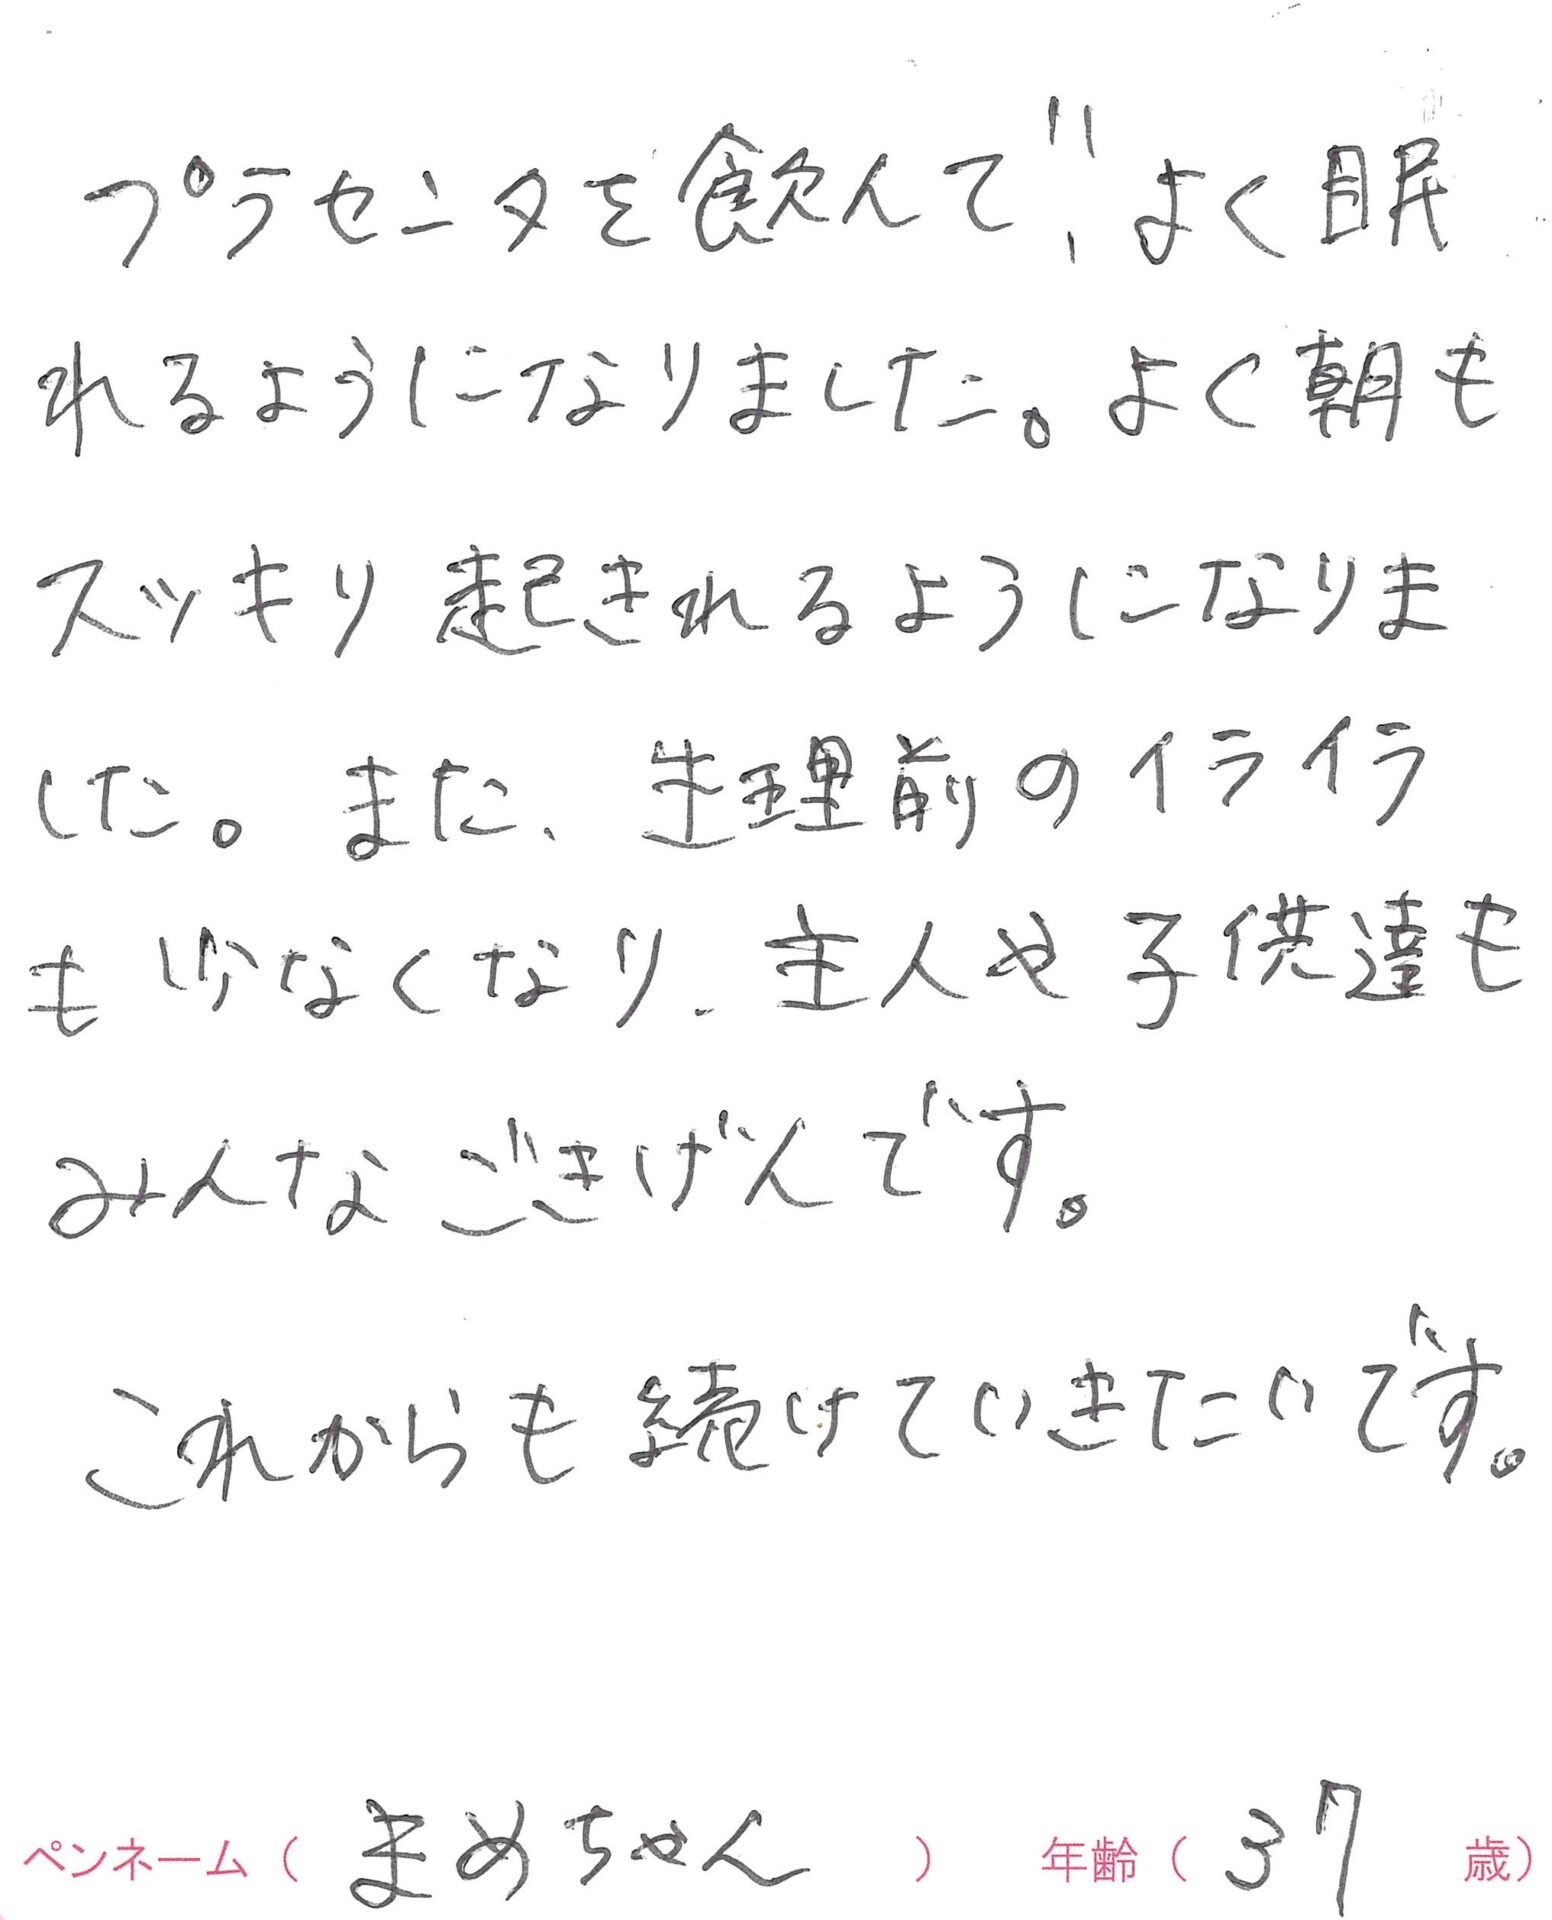 プラセンタを飲んで、よく眠
れるようになりました。よく朝も
スッキリ起きれるようになりま
した。また、生理前のイライラ
も少なくなり、主人や子供達も
みんなごきげんです。
これからも続けていきたいです。
ペンネーム（ まめちゃん ） 年齢（ 37 歳）